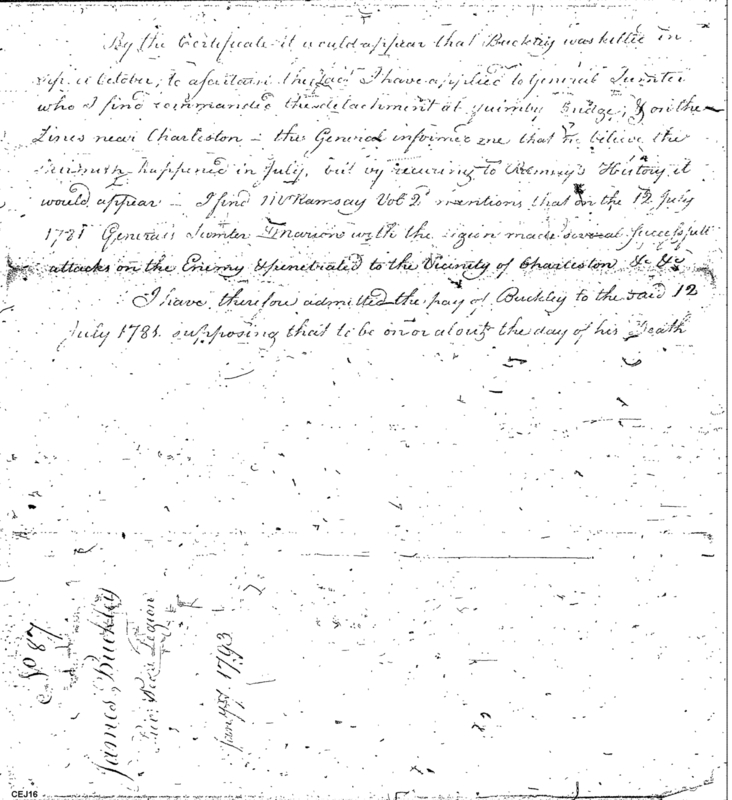 By the Certificate it would appear that Buckley was killed in
Sepr or October, to ascertain the fact I have applied to General Sumter
who I find commanded the detachment at Quimby Bridge, & on the
Lines near Charleston – the General informed me that he believe the
happened in July, but by recuring to Ramsay's History it
would appear – I find Mr Ramsay Vol 2d mentions that on the 12 July
1781 Generals Sumter & Marion with the Legion made several successfull
attacks on the Enemy & penetrated to the Vicinity of Charleston &c &c
I have therefore admitted the pay of Buckley to the said 12
July 1781. supposing that to be on or about the day of his Death
No 87
James Buckley
Legion
1793
CEJ16